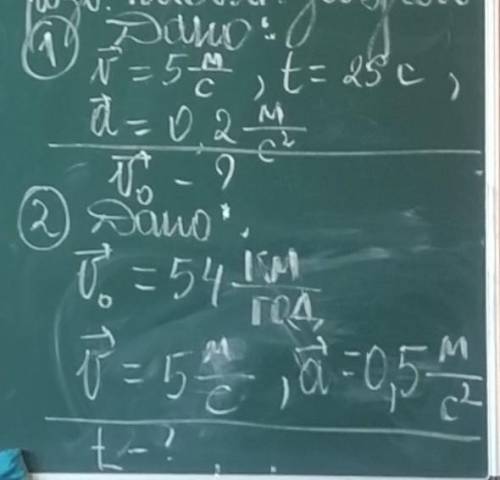 ① Дано:
v⃗ = 5 м/с, t = 25 с,
a⃗ = 0,2 м/с²
v⃗₀ - ?
② Дано:
v⃗₀ = 54 км/год,
v⃗ = 5 м/с, a⃗ = 0,5 м/с²
t - ?